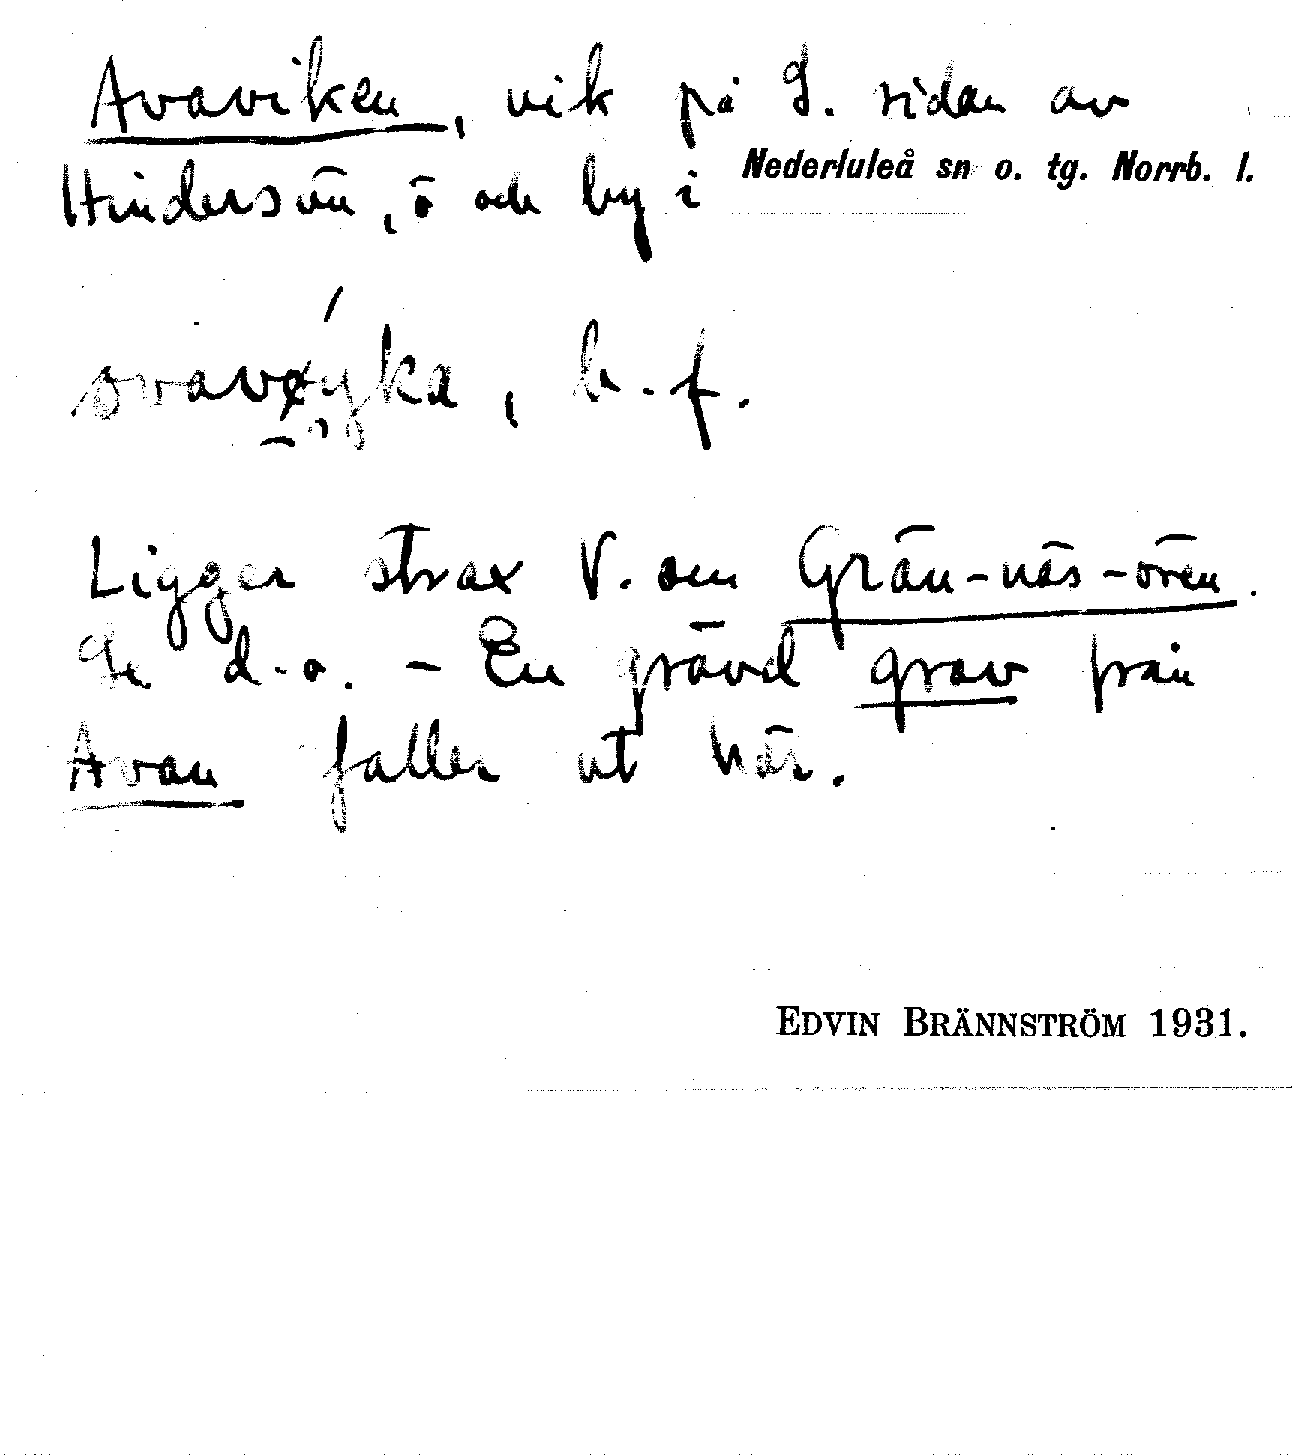 Avaviken, vik på S. sidan av
Hindersön, ö och by i Nederluleå sn o. tg. Norrb. l.
b. f.
Ligger strax V. om Grän-näs-ören.
Se d.o. – En grävd grav från
Avan faller ut här.
EDVIN BRÄNNSTRÖM 1931.